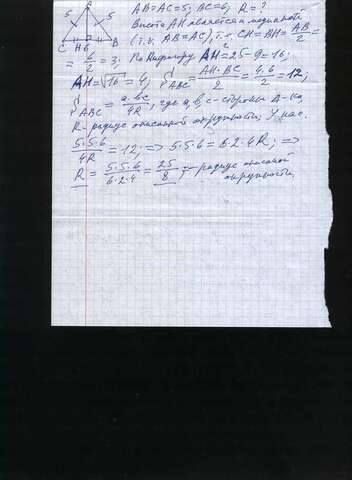 A
5 5
C H 6 B
AB=AC=5; BC=6, R=?
Высота AH является и медианой
(т.к. AB=AC), т.е. CH=BH=AB/2=
=6/2=3; По Пифагору AH²=25-9=16;
AH=√16=4; S ABC=AH·BC/2=4·6/2=12;
S ABC=a·b·c/4R, где a, b, c - стороны Δ-ка,
R - радиус описанной окружности; У нас:
5·5·6/4R=12; => 5·5·6=12·4R; =>
R=5·5·6/6·2·4=25/8; - радиус описанной
окружности.